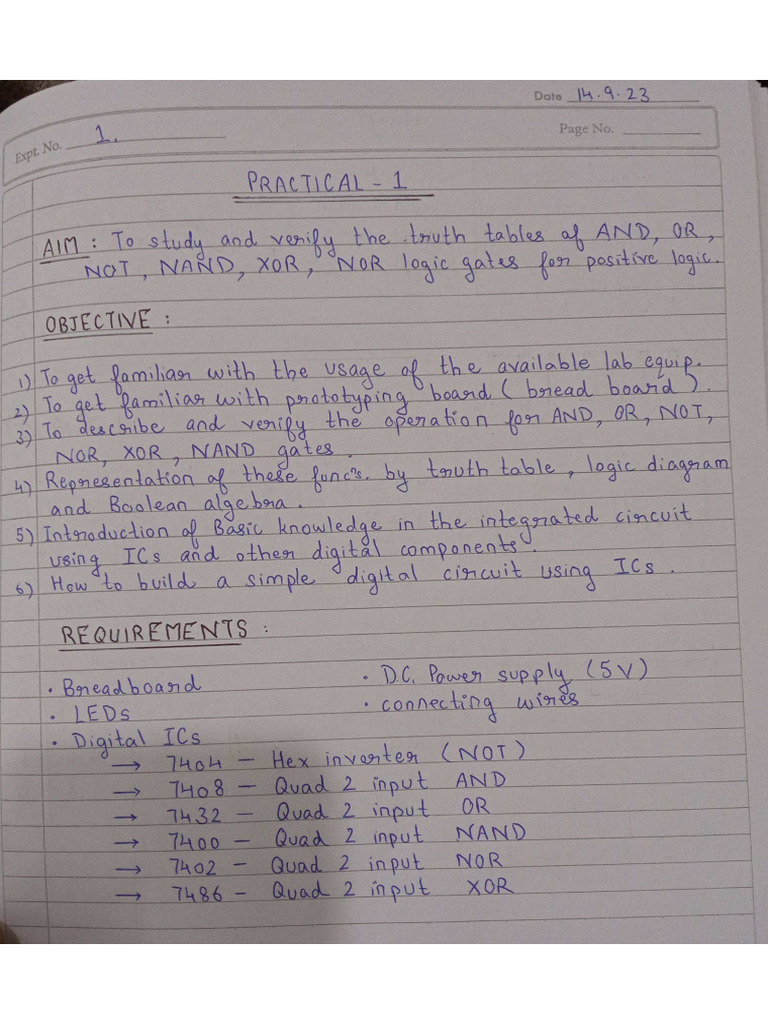 Date 14.9.23
Expt. No. 1.
Page No.
PRACTICAL - 1
AIM : To study and verify the truth tables of AND, OR,
NOT, NAND, XOR, NOR logic gates for positive logic.
OBJECTIVE :
1) To get familiar with the usage of the available lab equip.
2) To get familiar with prototyping board (bread board).
3) To describe and verify the operation for AND, OR, NOT,
NOR, XOR, NAND gates.
4) Representation of these func's. by truth table, logic diagram
and Boolean algebra.
5) Introduction of Basic knowledge in the integrated circuit
using ICs and other digital components.
6) How to build a simple digital circuit using ICs.
REQUIREMENTS :
• Breadboard • D.C. Power supply (5V)
• LEDs • connecting wires
• Digital ICs
→ 7404 - Hex inverter (NOT)
→ 7408 - Quad 2 input AND
→ 7432 - Quad 2 input OR
→ 7400 - Quad 2 input NAND
→ 7402 - Quad 2 input NOR
→ 7486 - Quad 2 input XOR